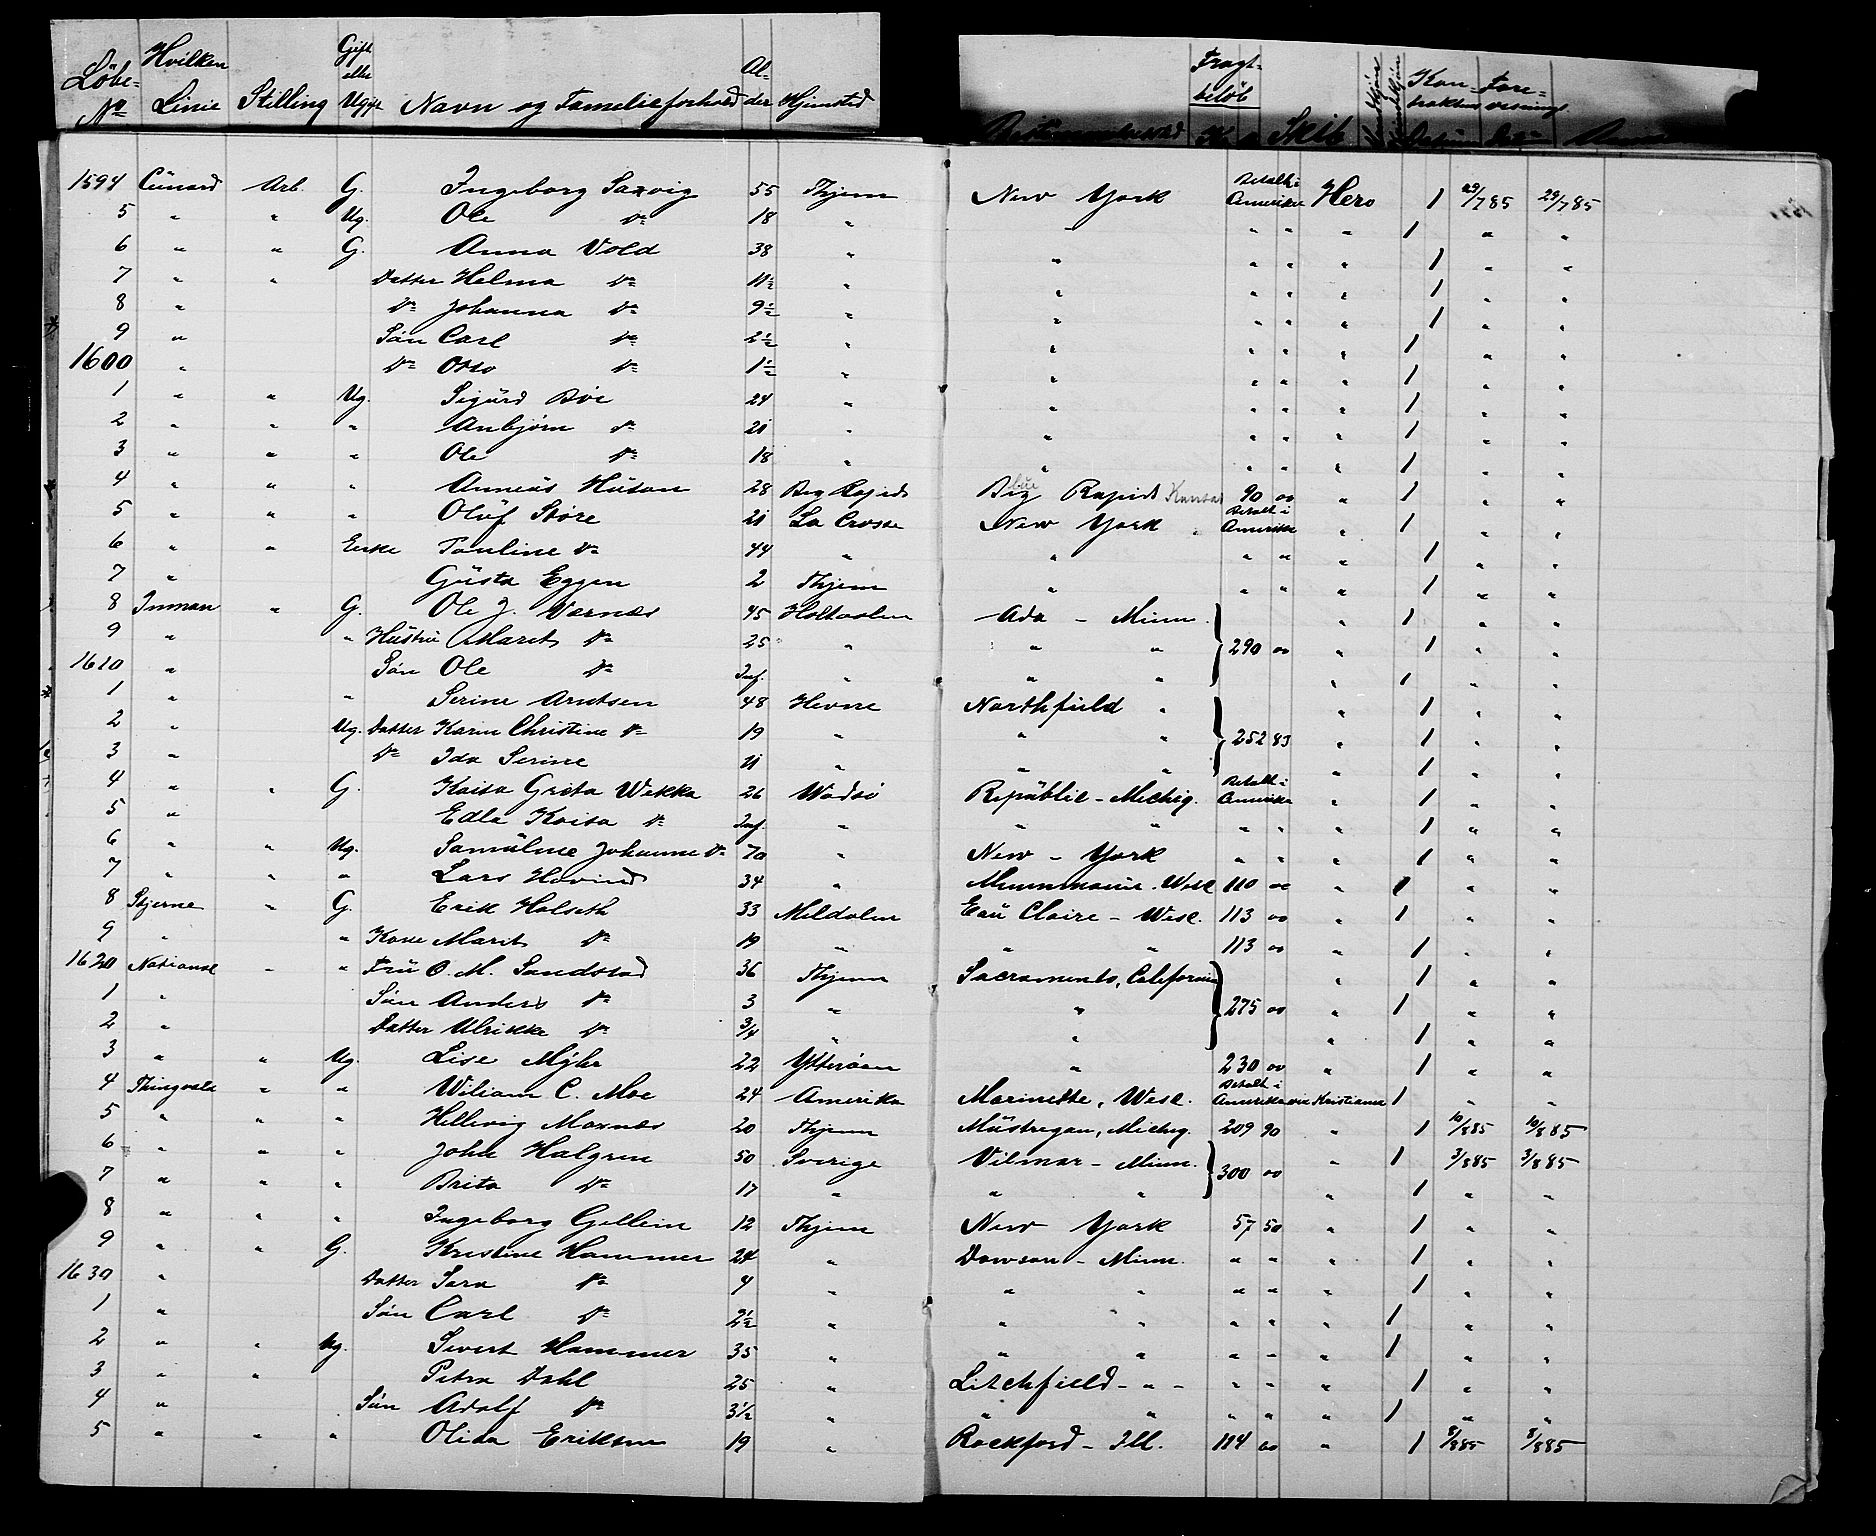 Löbe- No Hvilken Linie Stilling Gift eller Ugift Navn og Familieforhold Al-der Hjemsted Fragt-beløb Kr Skib Kon-traktens Datum
1594 Cunard Arb. G. Ingeborg Saxvig 55 Thjem New York Betalt i Amerika Hero 1 29/7 85 29/7 85
5 " " Ug. Ole Do 18 " " " " " 1 " "
6 " " G. Anna Vold 38 " " " " " 1 " "
7 " " Datter Helma Do 11½ " " " " " 1 " "
8 " Do Johanna Do 9½ " " " " " 1 " "
9 " Søn Carl Do 2½ " " " " " 1 " "
1600 " Do Otto Do 1½ " " " " " 1 " "
1 " " Ug. Sigurd Böe 24 " " " " " 1 " "
2 " " " Anbjörn Do 21 " " " " " 1 " "
3 " " " Ole Do 18 " " " " " 1 " "
4 " " " Anneus Huson 28 Big Rapids Big Rapids Kansas 90 00 " 1 " "
5 " " " Oluf Störe 21 La Crosse New York Betalt i Amerika " 1 " "
6 " " Enke Pauline Do 44 " " " " " 1 " "
7 " Gusta Eggen 2 Thjem " " " " 1 " "
8 Inman " G. Ole J. Værnes 45 Holtaalen Ada - Minn. " 1 " "
9 " " Hustru Marit Do 25 " " " 290 00 " 1 " "
1610 " Søn Ole Do Inf. " " " " 1 " "
1 " " Serine Arntsen 48 Hevne Northfield " " 1 " "
2 " Ug. Datter Karin Christine Do 19 " " " 252 83 " 1 " "
3 " Do Ida Serine 11 " " " " 1 " "
4 " " G. Kaisa Greta Wekka 26 Wadsö Republic - Michig. Betalt i Amerika " 1 " "
5 " Edla Kaisa Do Inf. " " " " " " 1 " "
6 " " Ug. Samuline Johanne Do 70 " New - York " " " 1 " "
7 " " " Lars Hovind 34 " Wisc. 110 00 " 1 " "
8 Stjerne " G. Erik Halseth 33 Meldalen Eau Claire - Wisc. 113 00 " 1 " "
9 " " Kone Marit Do 19 " " " 113 00 " 1 " "
1620 National " " Fru O. M. Sandstad 36 Thjem Sacramento, California " 1 " "
1 " Søn Anders Do 3 " " 275 00 " 1 " "
2 " Datter Ulrikke Do 3/4 " " " 1 " "
3 " " Ug. Lise Myhr 22 Ytterøen " 230 00 " 1 " "
4 Thingvalla " " Wiliam C. Moe 24 Amerika Marinette, Wisc. Betalt i Amerika via Kristiania 1 " "
5 " " Hellevig Moxnes 20 Thjem Muskegan, Michig. 209 90 " 1 10/8 85 10/8 85
6 " " " John Halgren 50 Sverige Vilmar - Minn. " 1 3/8 85 3/8 85
7 " " " Brita Do 17 " " " 300 00 " 1 " "
8 " " " Ingeborg Gellein 12 Thjem New York 57 50 " 1 " "
9 " " G. Kristine Hammer 24 " Dawson - Minn. " " " 1 " "
1630 " Datter Sara Do 4 " " " " " " 1 " "
1 " Søn Carl Do 2½ " " " " " " 1 " "
2 " " Ug. Sivert Hammer 35 " " " " " " 1 " "
3 " " Petra Dahl 25 " Litchfield - " - " " " 1 " "
4 " Søn Adolf Do 3½ " " " " " 1 " "
5 " " " Olida Eriksen 19 " Rockford - Ill. 114 00 " 1 8/8 85 8/8 85